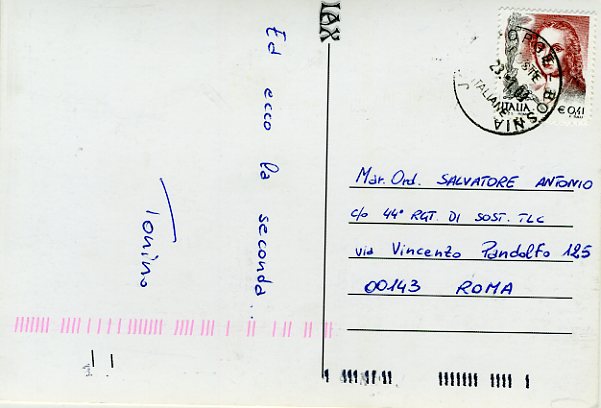 Ed ecco la seconda...
Tonino
ITALIA
€ 0,41
BOSNIA
ITALIANE
Mar. Ord. SALVATORE ANTONIO
c/o 44° RGT. DI SOST. TLC
via Vincenzo Pandolfo 125
00143 ROMA